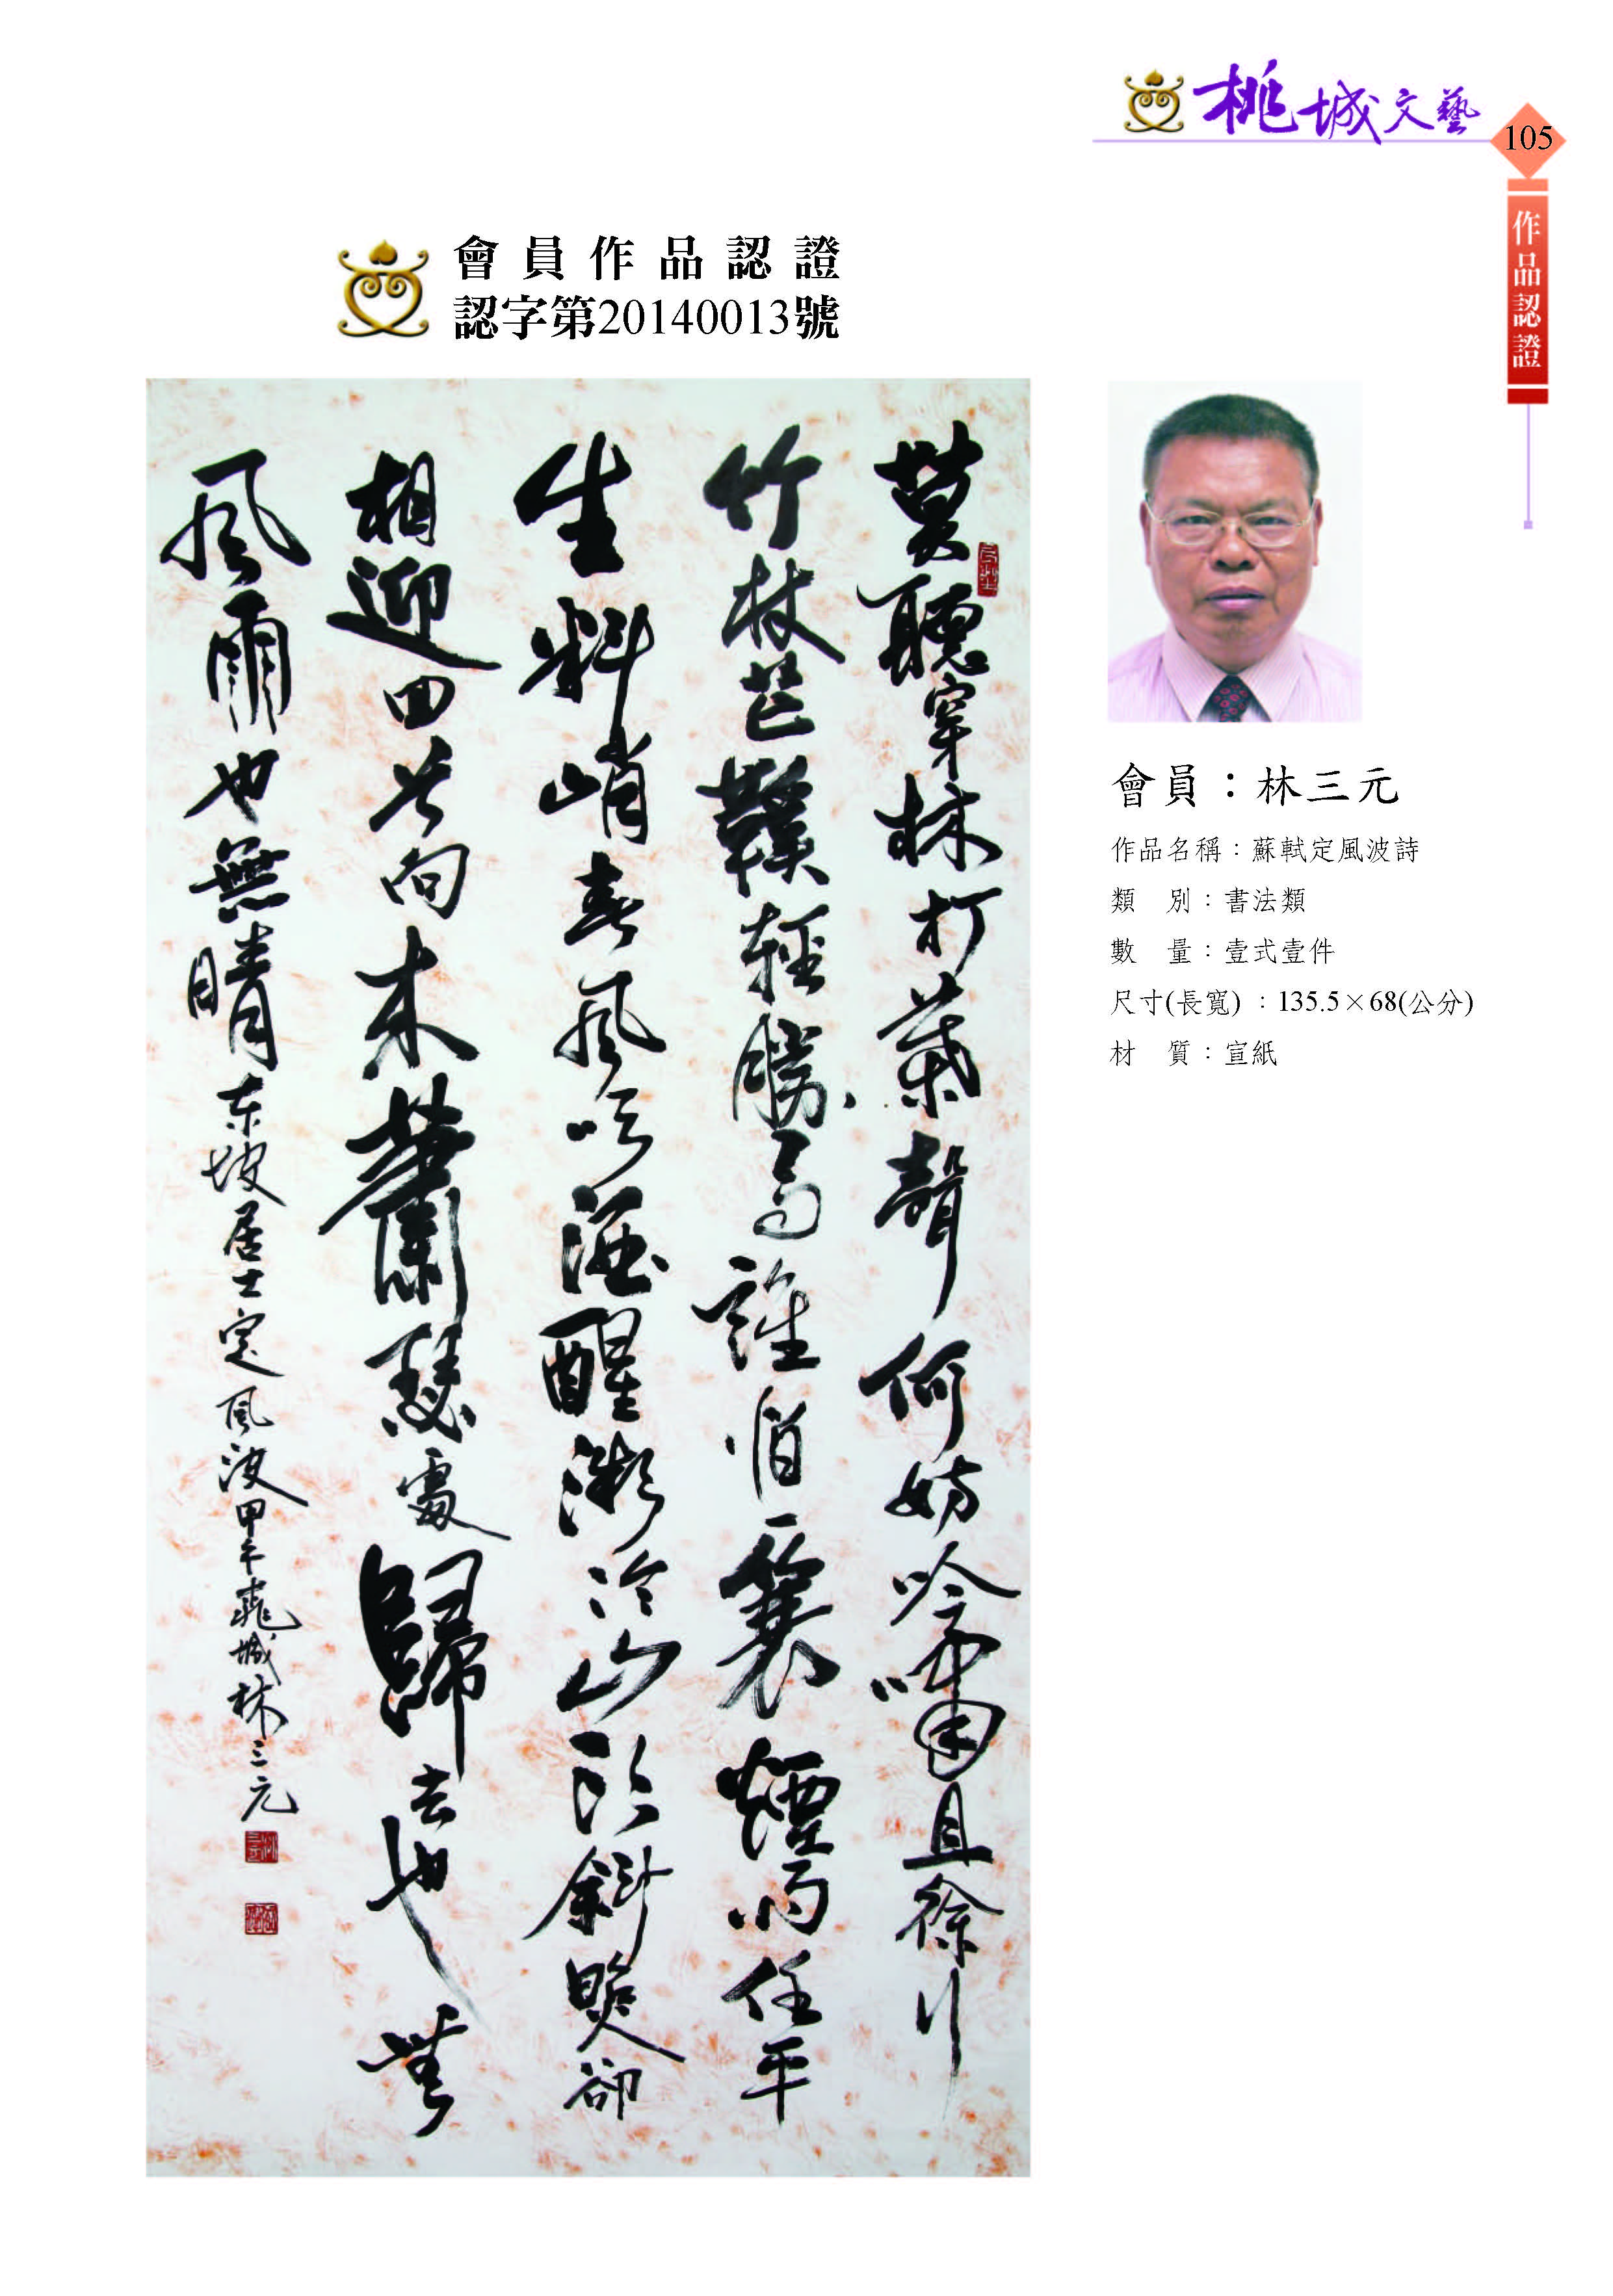 桃城文藝
105
作品認證
會員作品認證
認字第20140013號
莫聽穿林打葉聲何妨吟嘯且徐行
竹杖芒鞵輕勝馬誰怕一蓑煙雨任平
生料峭春風吹酒醒微冷山頭斜照卻
相迎回首向來蕭瑟處歸去也無
風雨也無晴東坡居士定風波甲午桃城林三元
會員：林三元
作品名稱：蘇軾定風波詩
類　別：書法類
數　量：壹式壹件
尺寸(長寬)：135.5×68(公分)
材　質：宣紙